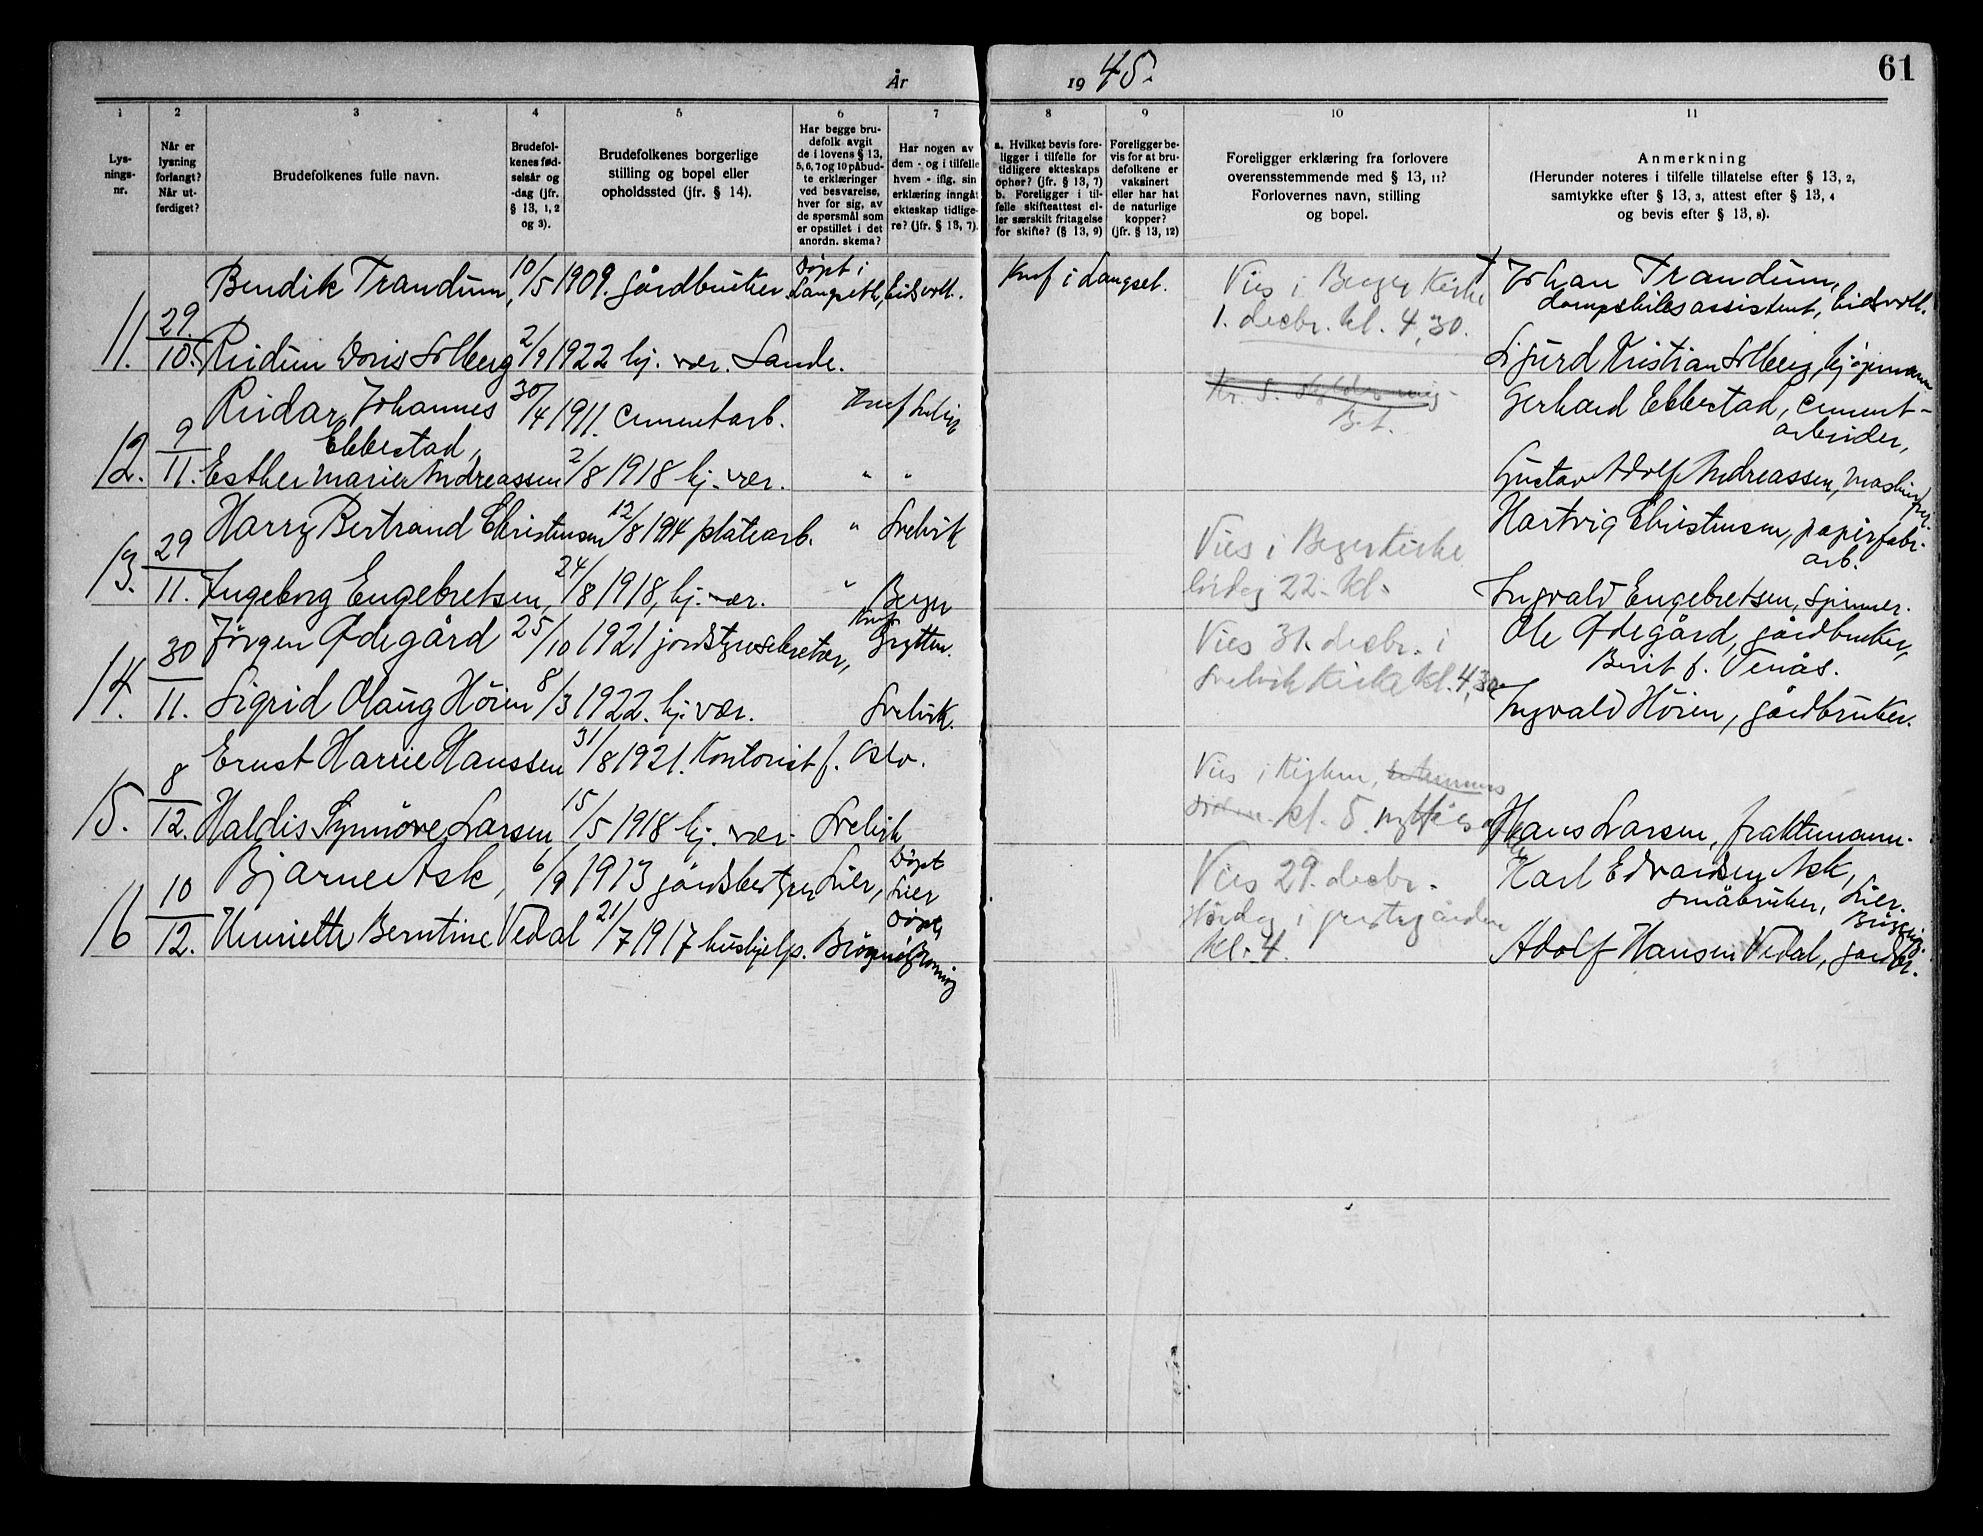 År 1945.
61
1 2 3 4 5 6 7 8 9 10 11
Lys-
nings-
nr.
Når er
lysning
forlangt?
Når ut-
ferdiget?
Brudefolkenes fulle navn.
Brudefol-
kenes fød-
selsår og
-dag (jfr.
§ 13, 1, 2
og 3).
Brudefolkenes borgerlige
stilling og bopel eller
opholdssted (jfr. § 14).
Har begge bru-
defolk avgit
de i lovens § 13,
5, 6, 7 og 10 påbud-
te erklæringer
ved besvarelse,
hver for sig, av
de spørsmål som
er opstillet i det
anordn. skema?
Har nogen av
dem - og i tilfelle
hvem - iflg. sin
erklæring inngåt
ekteskap tidlige-
re? (jfr. § 13, 7).
a. Hvilket bevis fore-
ligger i tilfelle for
tidligere ekteskaps
ophør? (jfr. § 13, 7)
b. Foreligger i til-
felle skifteattest el-
ler særskilt fritagelse
for skifte? (§ 13, 9)
Foreligger be-
vis for at bru-
defolkene er
vaksinert
eller har hat
de naturlige
kopper?
(jfr. § 13, 12)
Foreligger erklæring fra forlovere
overensstemmende med § 13, 11?
Forlovernes navn, stilling
og bopel.
Anmerkning
(Herunder noteres i tilfelle tillatelse efter § 13, 2,
samtykke efter § 13, 3, attest efter § 13, 4
og bevis efter § 13, 8).
11. 29/10.
Bendik Trandum, 10/5 1909. gårdbruker døpt i Langseth, Eidsvoll.
Knf i Langset.
Vies i Berger Kirke
1. decbr. kl. 4,30.
Johan Trandum,
Eidsvoll.
Reidun Doris Solberg 2/9 1922 hj. vær. Sande.
Sigurd Kristian Solberg, kjøpmann
12. 9/11.
Reidar Johannes
Ebbestad, 30/4 1911. cementarb. Knf Svelvik
Gerhard Ebbestad, cement-
arbeider,
Esther Marie Andreassen 2/8 1918 hj. vær. " "
Gustav Adolf Andreassen,
13. 29/11.
Harry Bertrand Christensen 12/8 1914 platearb. " Svelvik
Vies i Berger Kirke
lørdag 22. kl.
Hartvig Christensen, papirfabr.
arb.
Ingeborg Engebretsen, 24/8 1918, hj. vær. " Berger
Ingvald Engebretsen, spinner.
14. 30/11.
Jörgen Ødegård 25/10 1921 jordstyresekretær, Knf Grytten.
Vies 31. decbr. i
Svelvik Kirke kl. 4,30.
Ole Ødegård, gårdbruker,
Berit f. Venås.
Sigrid Olaug Hören 8/3 1922. hj. vær. Svelvik.
Ingvald Hören, gårdbruker.
15. 8/12.
Ernst Harrie Hanssen 31/8 1921. Kontorist f. Oslo.
Vies i Kirken,
kl. 5. nyttårs
Haldis Synnöve Larsen 15/5 1918 hj. vær. Svelvik
Hans Larsen, fraktemann.
16 10/12.
Bjarne Ask, 6/9 1913 gårdsbestyrer Lier, Döpt Lier
Vies 29. decbr.
lördag i prestegården
kl. 4.
Karl Edvardsen Ask,
småbruker, Lier.
Henriette Berntine Vedal 21/7 1917 hushjelp. Döpt,
Adolf Hansen Vedal, gårdbr.